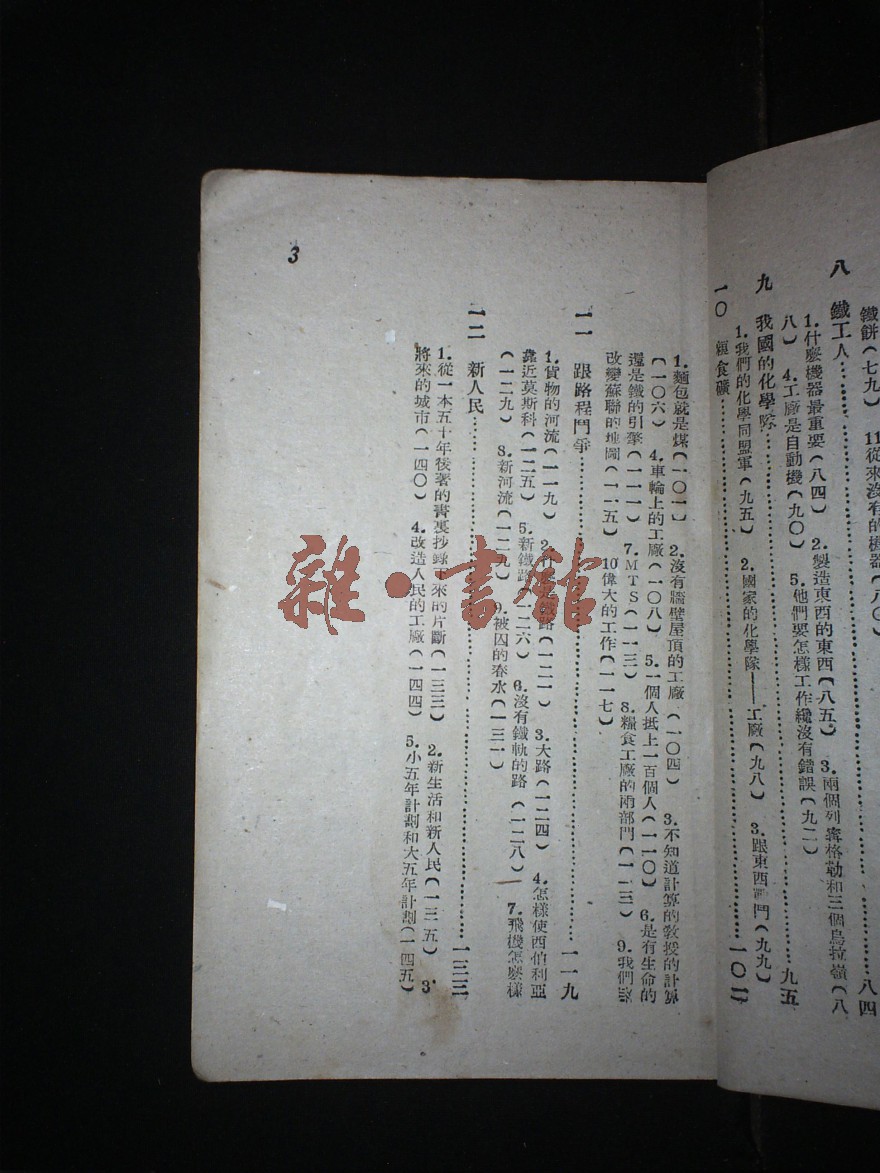 鐵餅(七九) 11從來沒有的機器(八〇)
八 鐵工人……八四
1.什麼機器最重要(八四) 2.製造東西的東西(八五) 3.兩個列寧格勒和三個烏拉嶺(八
八) 4.工廠是自動機(九〇) 5.他們要怎樣工作纔沒有錯誤(九二)
九 我國的化學隊……九五
1.我們的化學同盟軍(九五) 2.國家的化學隊——工廠(九八) 3.跟東西鬥(九九)
一〇 糧食礦……一〇一
1.麵包就是煤(一〇一) 2.沒有牆壁屋頂的工廠(一〇四) 3.不知道計算的教授的計算
(一〇六) 4.車輪上的工廠(一〇八) 5.一個人抵上一百個人(一一〇) 6.是有生命的
還是鐵的引擎(一一一) 7.MTS(一一三) 8.糧食工廠的兩部門(一一三) 9.我們
改變蘇聯的地圖(一一五) 10偉大的工作(一一七)
一一 跟路程鬥爭……一一九
1.貨物的河流(一一九) 2.路(一二一) 3.大路(一二四) 4.怎樣使西伯利亞
靠近莫斯科(一二五) 5.新鐵路(一二六) 6.沒有鐵軌的路(一二八) 7.飛機怎麼樣
(一二九) 8.新河流(一二九) 9.被囚的春水(一三一)
一二 新人民……一三三
1.從一本五十年後著的書裏抄錄下來的片斷(一三三) 2.新生活和新人民(一三五) 3.
將來的城市(一四〇) 4.改造人民的工廠(一四四) 5.小五年計劃和大五年計劃(一四五)
3
雜·書館